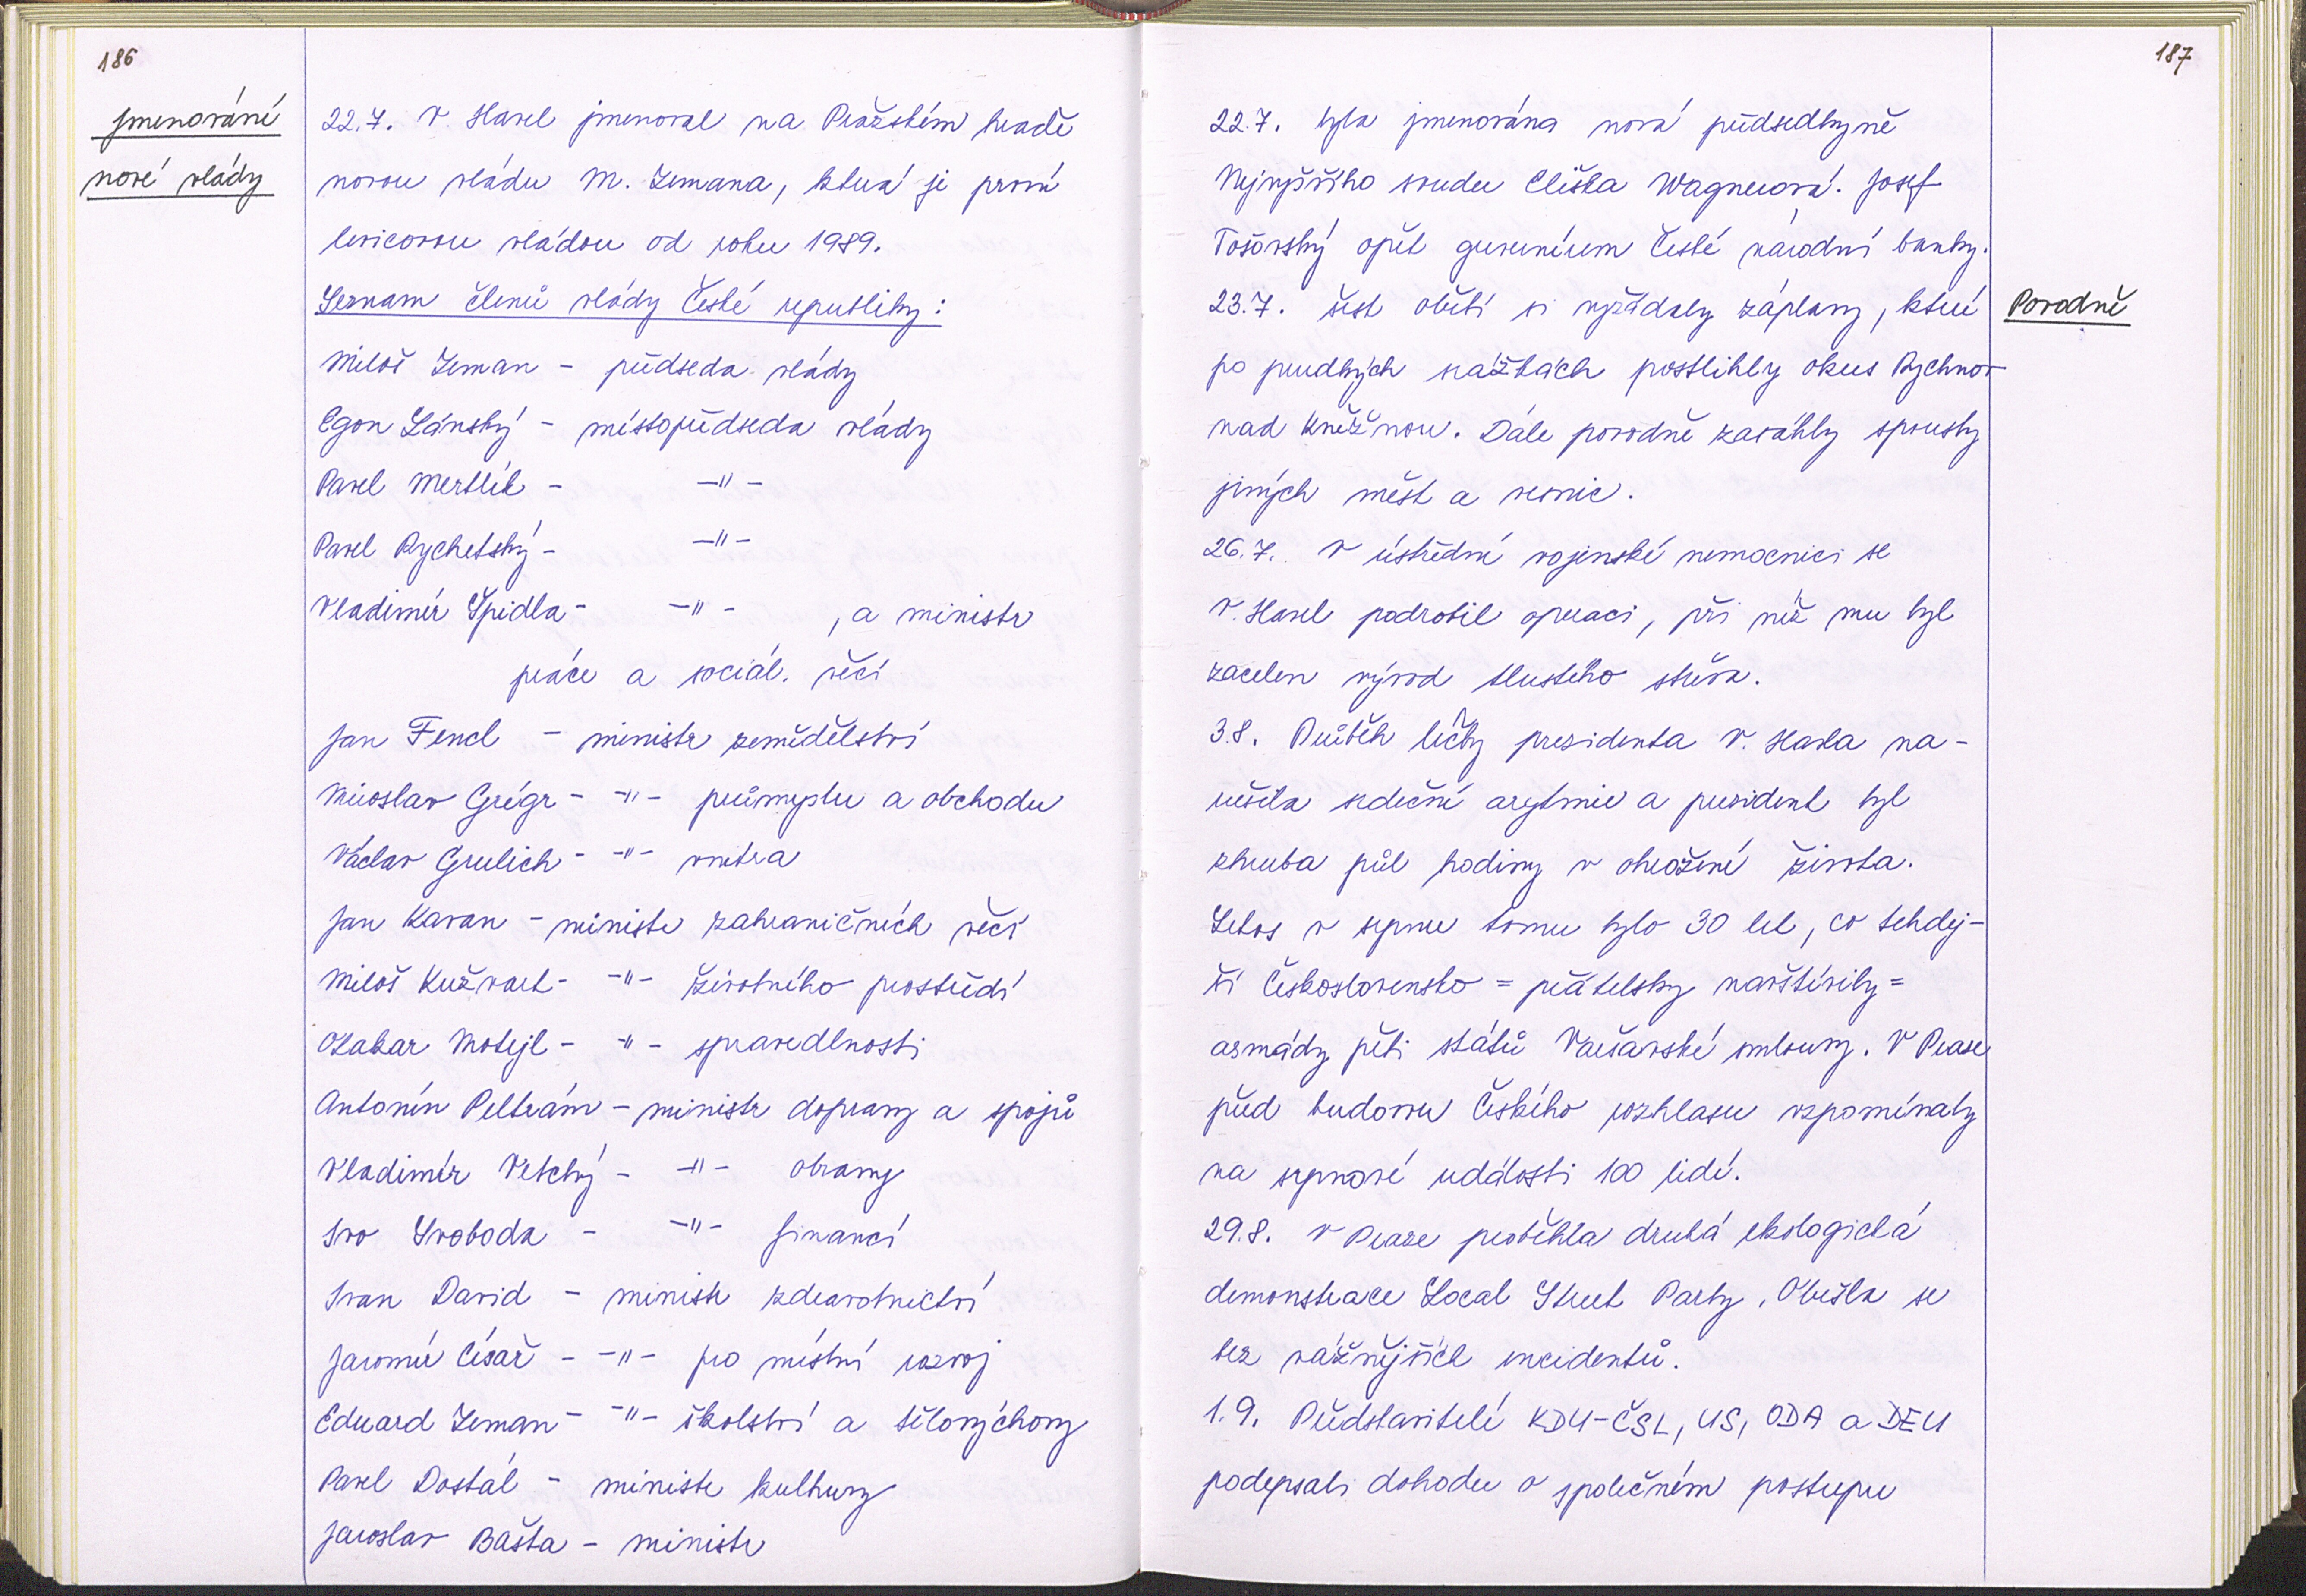 186
Jmenování
nové vlády
22.7. V. Havel jmenoval na Pražském hradě
novou vládu M. Zemana, která je první
levicovou vládou od roku 1989.
Seznam členů vlády České republiky:
Miloš Zeman - předseda vlády
Egon Lánský - místopředseda vlády
Pavel Mertlík - —"—
Pavel Rychetský - —"—
Vladimír Špidla - —"— , a ministr
práce a sociál. věcí
Jan Fencl - ministr zemědělství
Miroslav Grégr - —"— průmyslu a obchodu
Václav Grulich - —"— vnitra
Jan Kavan - ministr zahraničních věcí
Miloš Kužvart - —"— životního prostředí
Otakar Motejl - —"— spravedlnosti
Antonín Peltrám - ministr dopravy a spojů
Vladimír Vetchý - —"— obrany
Ivo Svoboda - —"— financí
Ivan David - ministr zdravotnictví
Jaromír Císař - —"— pro místní rozvoj
Eduard Zeman - —"— školství a tělovýchovy
Pavel Dostál - ministr kultury
Jaroslav Bašta - ministr
187
22.7. byla jmenována nová předsedkyně
Nejvyššího soudu Eliška Wagnerová. Josef
Tošovský opět guvernérem České národní banky.
23.7. šest obětí si vyžádaly záplavy, které
po prudkých srážkách postihly okres Rychnov
nad Kněžnou. Dále povodně zasáhly spousty
jiných měst a vesnic.
Povodně
26.7. V ústřední vojenské nemocnici se
V. Havel podrobil operaci, při níž mu byl
zacelen vývod tlustého střeva.
3.8. Průběh léčby presidenta V. Havla na-
rušila srdeční arytmie a president byl
zhruba půl hodiny v ohrožení života.
Letos v srpnu tomu bylo 30 let, co tehdej-
ší Československo = přátelsky navštívily =
armády pěti států Varšavské smlouvy. V Praze
před budovou Českého rozhlasu vzpomínaly
na srpnové události 100 lidí.
29.8. V Praze proběhla druhá ekologická
demonstrace Local Street Party. Obešla se
bez vážnějších incidentů.
1.9. Představitelé KDU-ČSL, US, ODA a DEU
podepsali dohodu o společném postupu